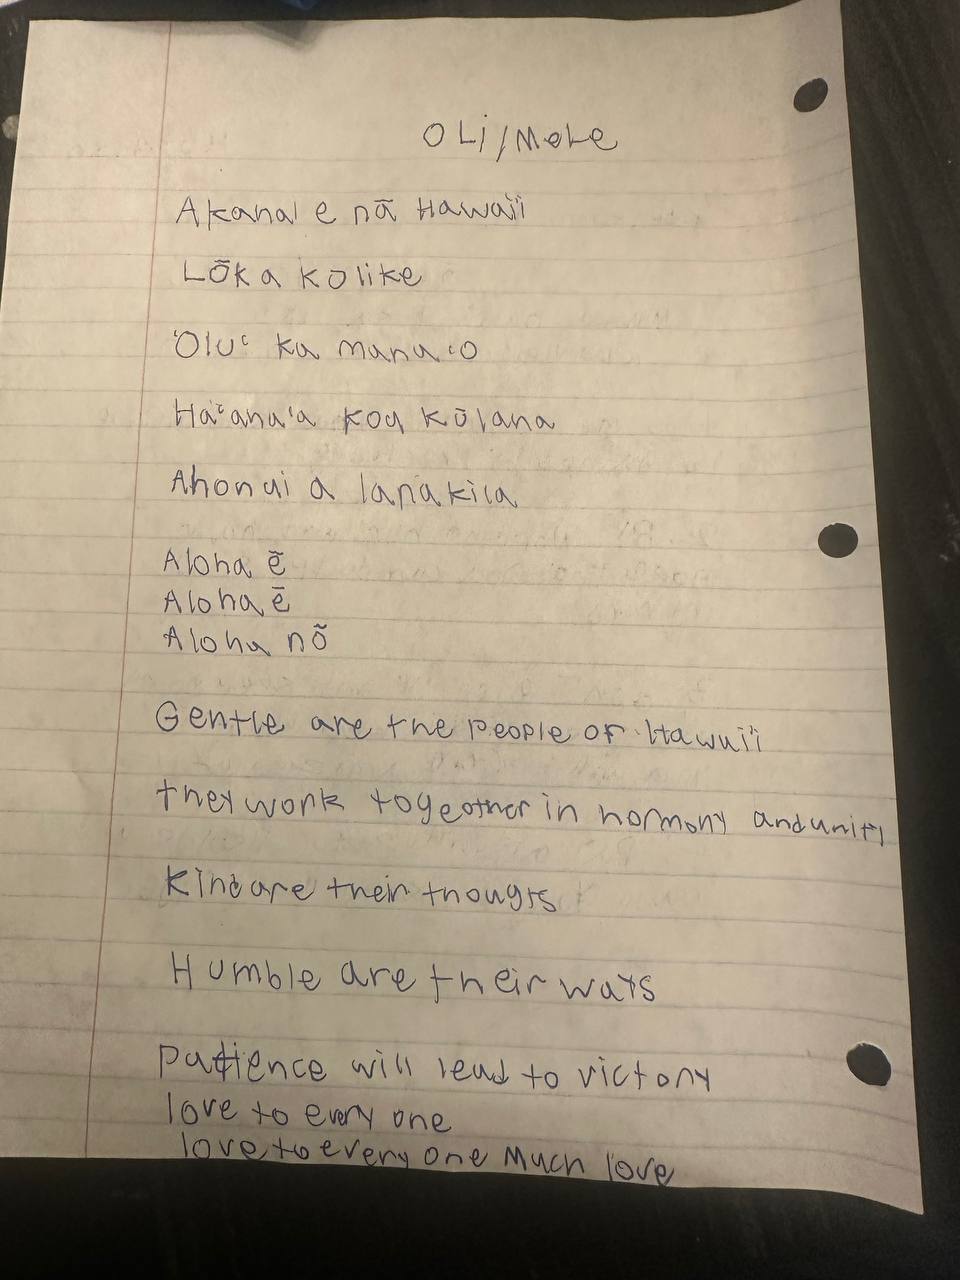 OLi/Mele
Akahai e nā Hawaiʻi
Lōka kōlike
ʻOluʻ ka manaʻo
Haʻanaʻa kou kūlana
Ahonui a lanakila
Aloha ē
Aloha ē
Aloha nō
Gentle are the people of Hawaiʻi
they work togeother in hormony and unity
Kind are their thougts
Humble are their ways
Patience will lead to victory
love to every one
love to every one Much love